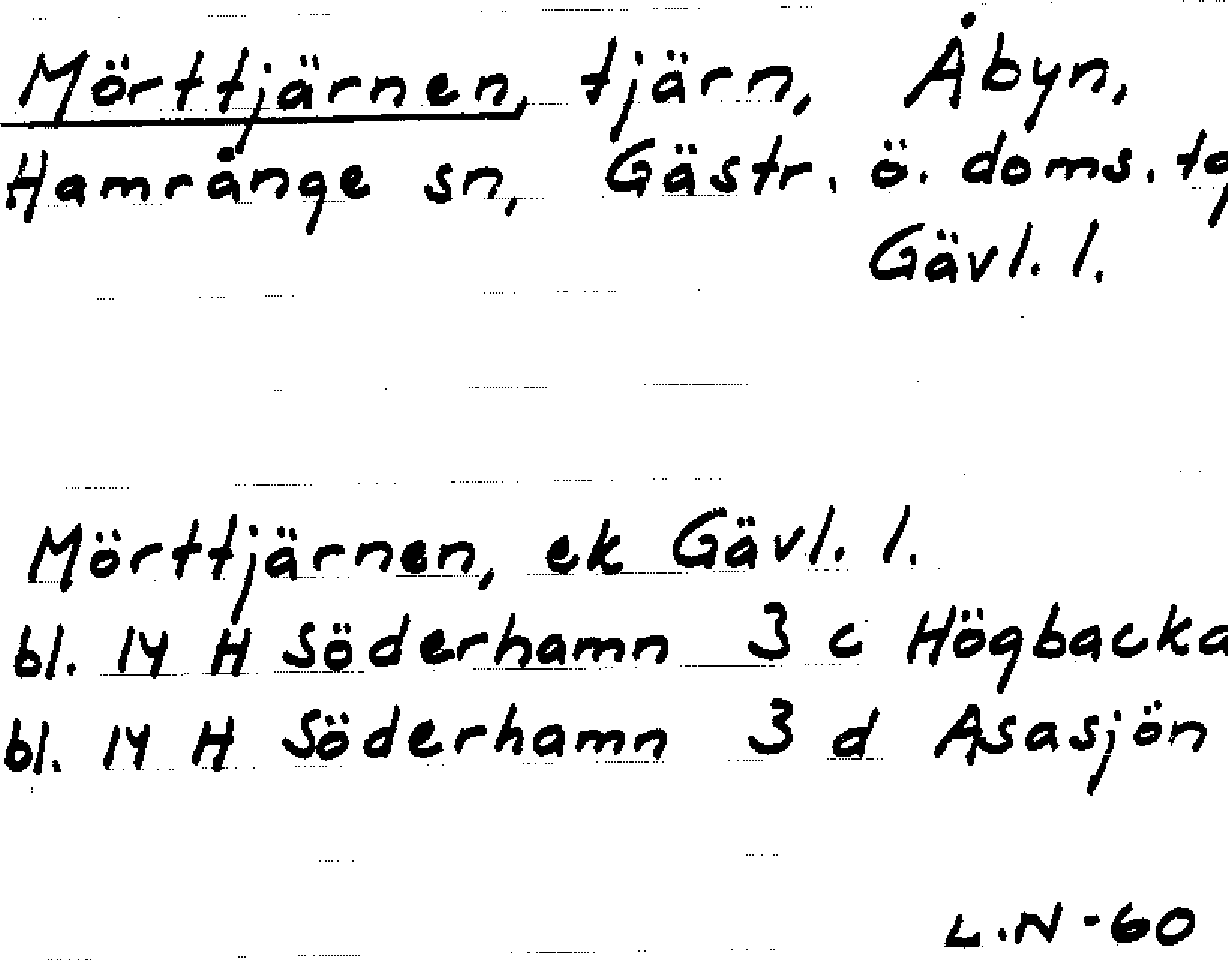 Mörttjärnen, tjärn, Åbyn,
Hamrånge sn, Gästr. ö. doms. tg
Gävl. l.
Mörttjärnen, ek Gävl. l.
bl. 14 H Söderhamn 3 c Högbacka
bl. 14 H Söderhamn 3 d Asasjön
L.N-60